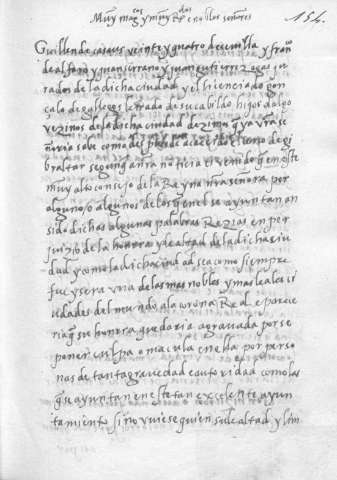 Muy magcos y muy Rdos e nobles señores
154.
Guillen de casaus veinte y quatro de sevilla y fran
de alfaro y Juan serrano y Juan gutierrez ju
rados de la dicha ciudad y el licenciado gon
çalo de gallegos letrado de su cabildo hijos dalgo
vezinos de la dicha ciudad dezimos q ya vra se
ñoria sabe como des pues de acaecido el cerco de gi
braltar segoen gañra noticia el venido q en este
muy alto consejo de la Reyna nra señora por
alguno o algunos de los q en el se ayuntan an
sido dichas algunas palabras Rezias en per
juizio de la honrra y lealtad de la dicha ciu
dad y como la dicha ciudad sea como siempre
fue y sera una de las mas nobles y mas leales ci
udades del mundo a la corona Real e parecie
ria q su honrra quedaria agravada por se
poner culpa o macula en ella por perso
nas de tanta gravedad e autoridad como las
q se ayuntan en estan excelente ayun
tamiento si no vuiese quien su lealtad y lim